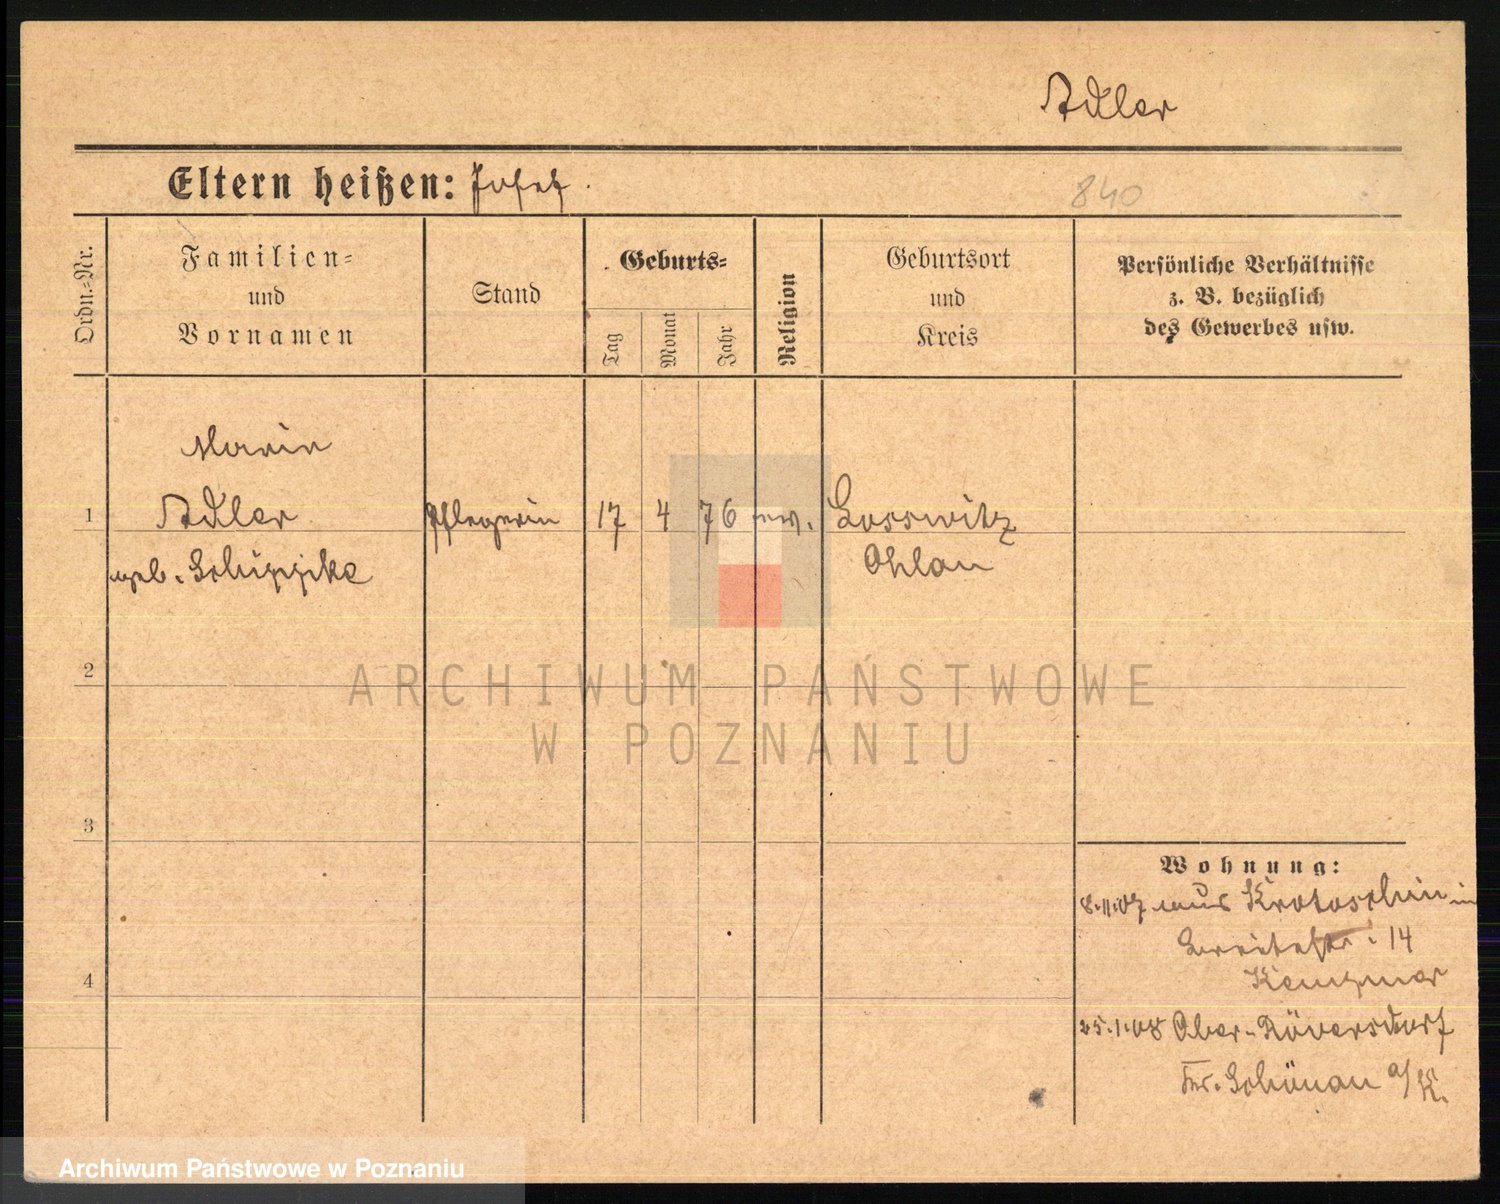 Adler
Eltern heißen: Josef.
840
Ordn.-Nr.
Familien-
und
Vornamen
Stand
Geburts-
Tag
Monat
Jahr
Religion
Geburtsort
und
Kreis
Persönliche Verhältnisse
z. B. bezüglich
des Gewerbes usw.
Marie
1 Adler Pflegerin 17 4 76 ev. Gosswitz
geb. Ohlau
2
ARCHIWUM PAŃSTWOWE
W POZNANIU
3
Wohnung:
8.11.07 aus Krotoschin in
Breitestr. 14
4
25.1.08 Ober-Röversdorf
Kr. Schönau a/K.
Archiwum Państwowe w Poznaniu